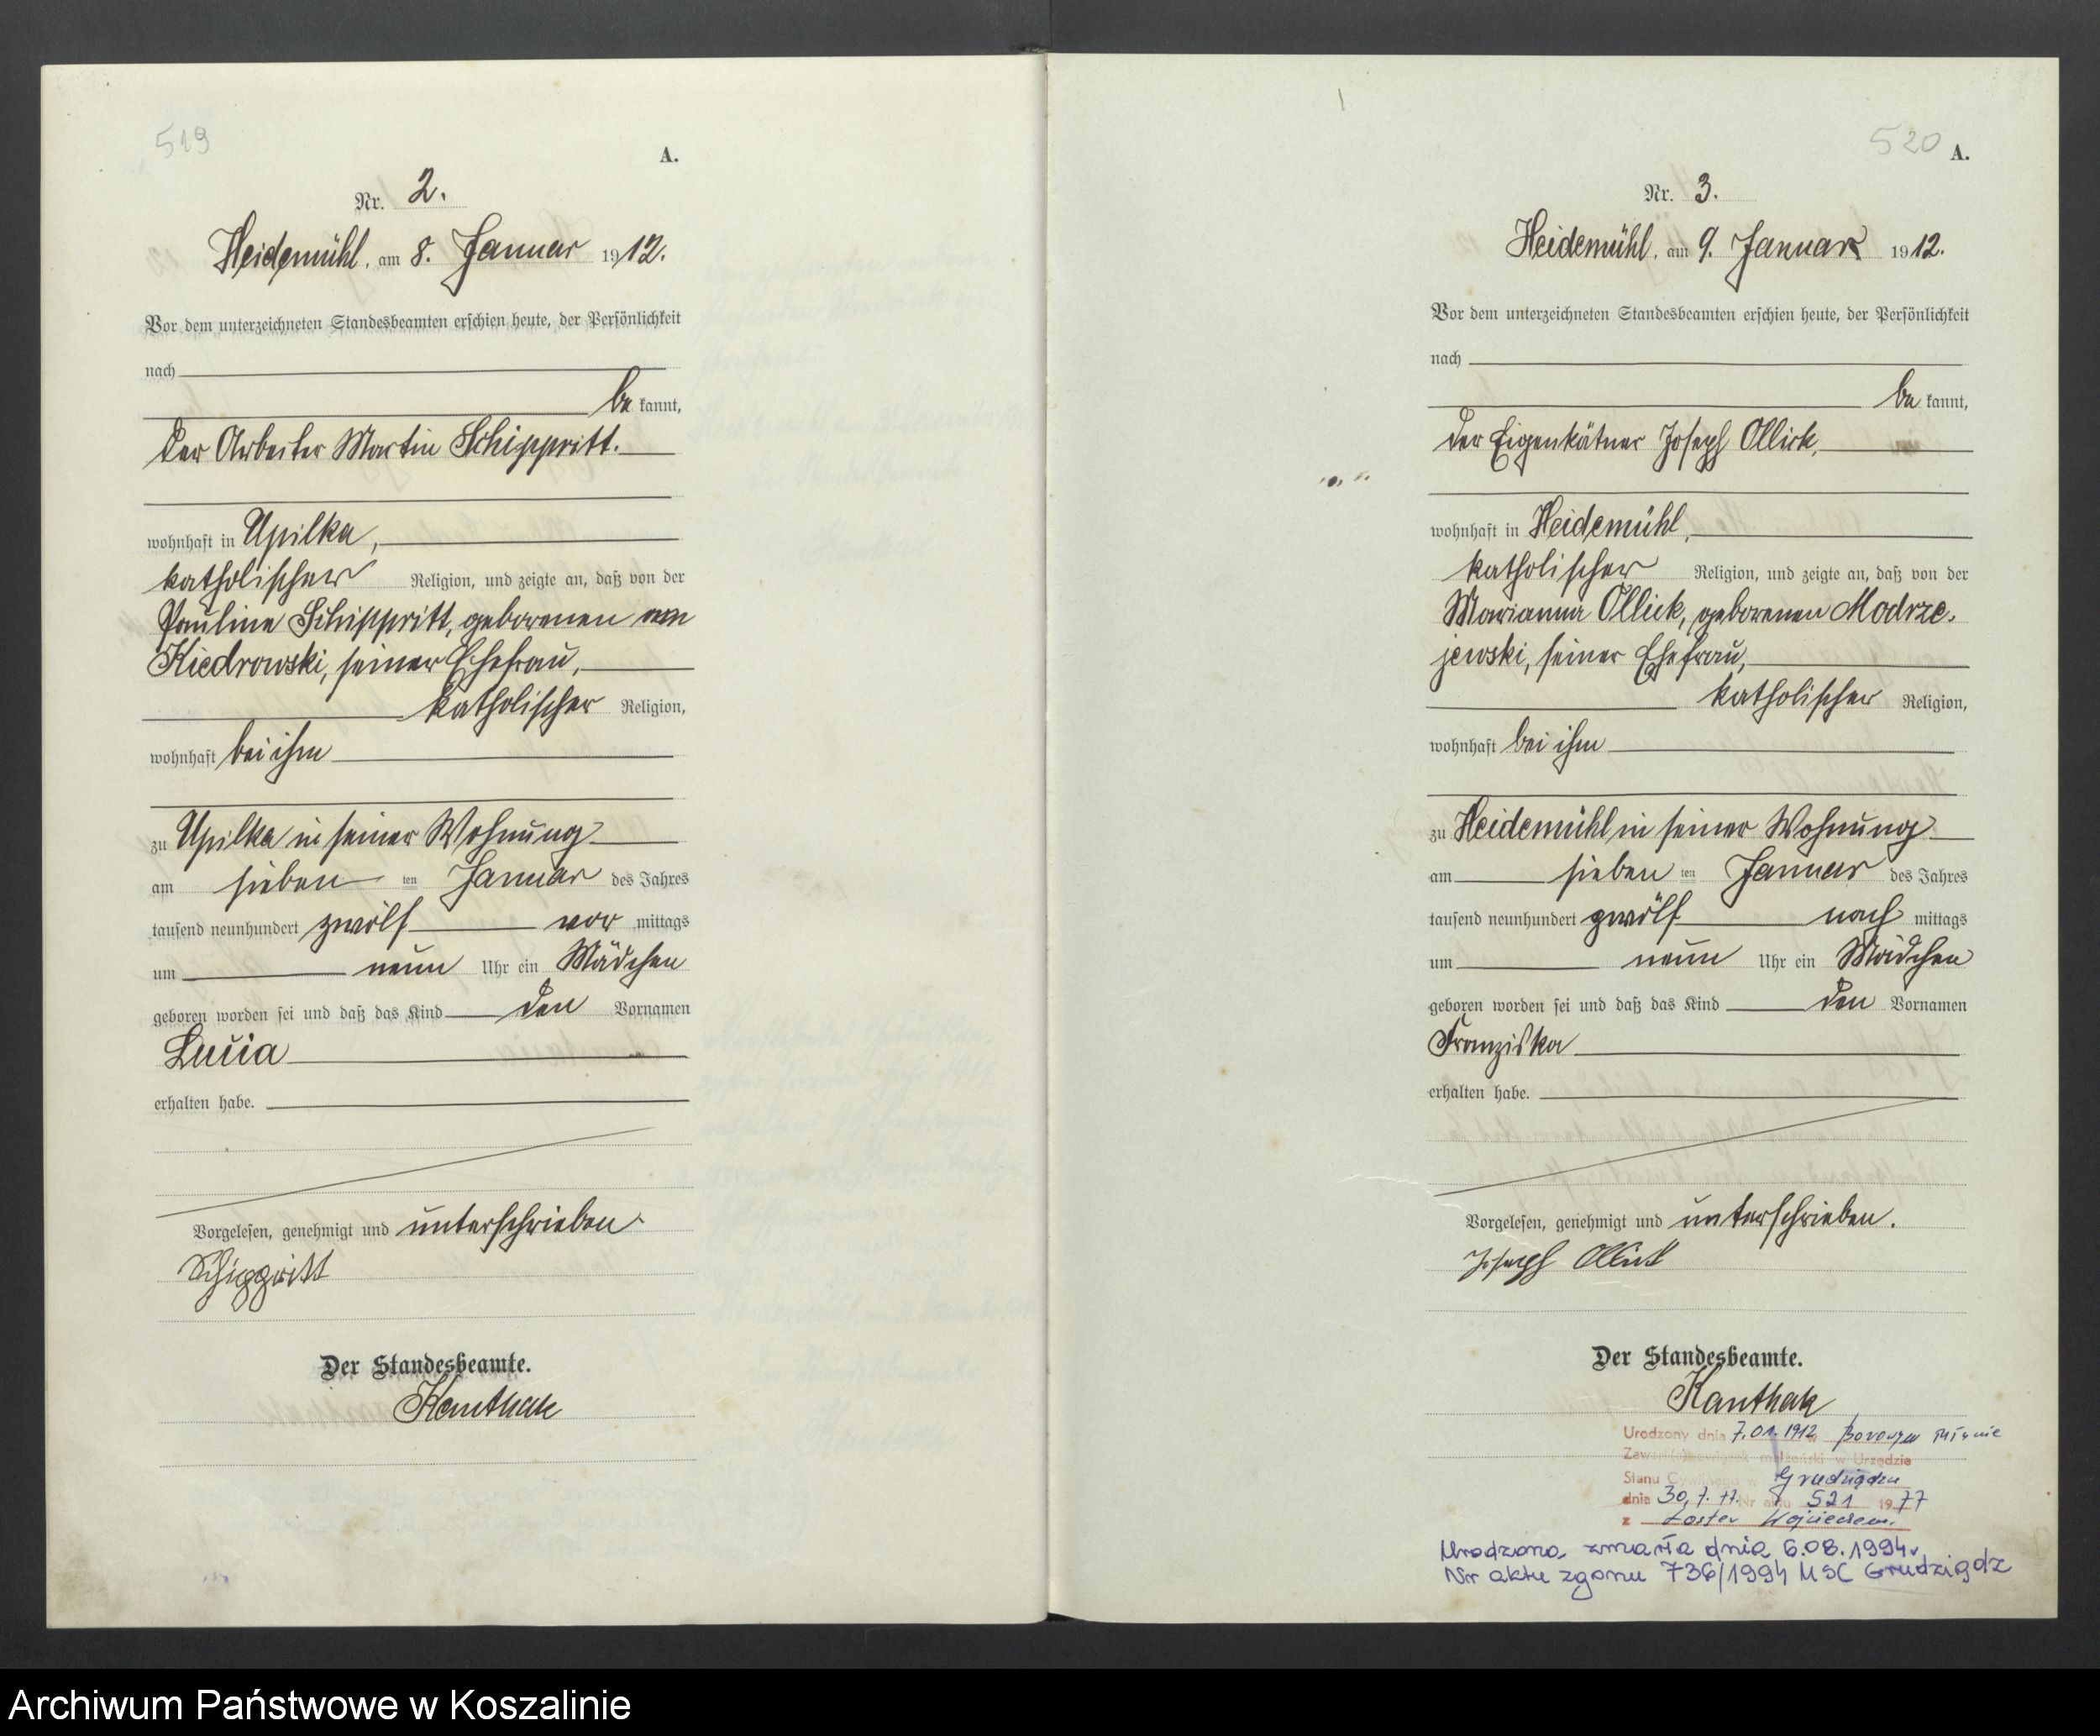 519
A.
Nr. 2.
Heidemühl, am 8. Januar 1912.
Vor dem unterzeichneten Standesbeamten erschien heute, der Persönlichkeit
nach
be kannt,
der Arbeiter Martin Schippritt.
wohnhaft in Upilka,
katholischer Religion, und zeigte an, daß von der
Pauline Schippritt, geborenen von
Kiedrowski, seiner Ehefrau,
katholischer Religion,
wohnhaft bei ihm
zu Upilka in seiner Wohnung
am sieben ten Januar des Jahres
tausend neunhundert zwölf vor mittags
um neun Uhr ein Mädchen
geboren worden sei und daß das Kind den Vornamen
Lucia
erhalten habe.
Vorgelesen, genehmigt und unterschrieben.
Schippritt
Der Standesbeamte.
Kanthak
520
A.
Nr. 3.
Heidemühl, am 9. Januar 1912.
Vor dem unterzeichneten Standesbeamten erschien heute, der Persönlichkeit
nach
be kannt,
der Eigenkätner Joseph Ollick,
wohnhaft in Heidemühl,
katholischer Religion, und zeigte an, daß von der
Marianna Ollick, geborenen Modrze-
jewski, seiner Ehefrau,
katholischer Religion,
wohnhaft bei ihm
zu Heidemühl in seiner Wohnung
am sieben ten Januar des Jahres
tausend neunhundert zwölf nach mittags
um neun Uhr ein Mädchen
geboren worden sei und daß das Kind den Vornamen
Franziska
erhalten habe.
Vorgelesen, genehmigt und unterschrieben.
Joseph Ollick
Der Standesbeamte.
Kanthak
Urodzony dnia 7.01.1912 w Borowy Młynie
Zawarł związek małżeński w Urzędzie
Stanu Cywilnego w Grudziądzu
dnia 30.7.77. Nr aktu 521 1977
z Łoster Wojciechem.
Urodzona zmarła dnia 6.08.1994r
Nr aktu zgonu 736/1994 USC Grudziądz
Archiwum Państwowe w Koszalinie